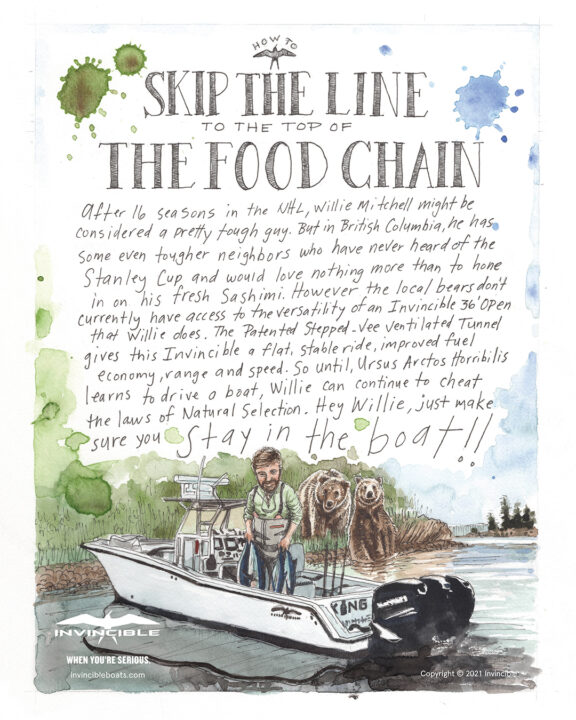 HOW TO
SKIP THE LINE
TO THE TOP OF
THE FOOD CHAIN
After 16 seasons in the NHL, Willie Mitchell might be
considered a pretty tough guy. But in British Columbia, he has
some even tougher neighbors who have never heard of the
Stanley Cup and would love nothing more than to hone
in on his fresh Sashimi. However the local bears don't
currently have access to the versatility of an Invincible 36' Open
that Willie does. The Patented Stepped-Vee Ventilated Tunnel
gives this Invincible a flat, stable ride, improved fuel
economy, range and speed. So until, Ursus Arctos Horribilis
learns to drive a boat, Willie can continue to cheat
the laws of Natural Selection. Hey Willie, just make
sure you stay in the boat!!
INVINCIBLE
WHEN YOU'RE SERIOUS.
invincibleboats.com
Copyright © 2021 Invincible